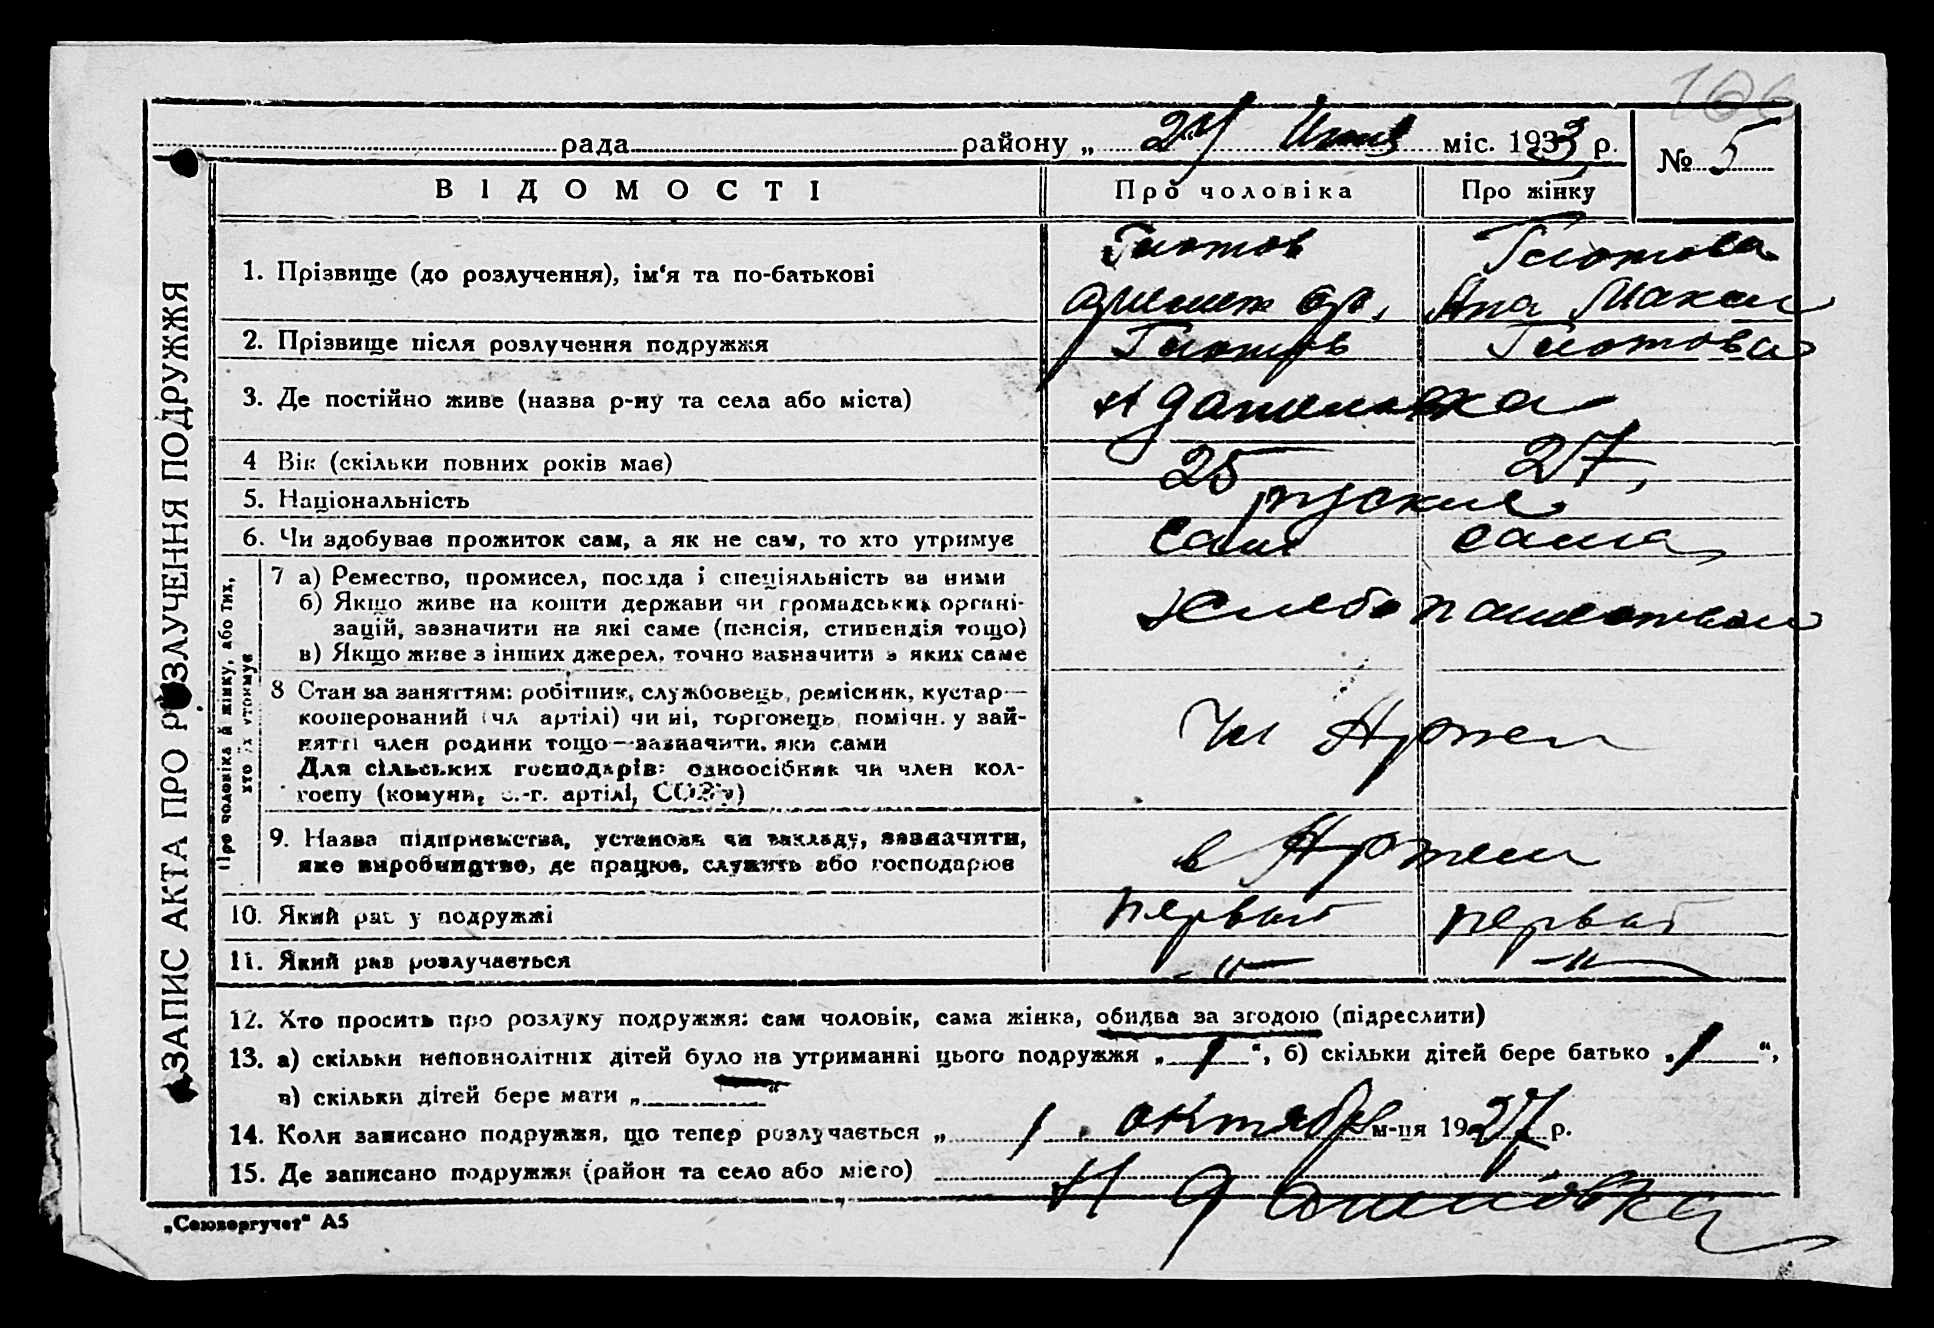 106
рада района „ 24 міс. 1933 р.
№ 5
ВІДОМОСТІ
Про чоловіка
Про жінку
1. Прізвище (до розлучення), ім‘я та по-батькові
2. Прізвище після розлучення подружжя
3. Де постійно живе (назва р-ну та села або міста)
4 Вік (скільки повних років має)
25 27,
5. Національність
руские
6. Чи здобуває прожиток сам, а як не сам, то хто утримує
сам сама
7 а) Ремество, промисел, посада і спеціяльність за ними
б) Якщо живе на кошти держави чи громадських органі-
зацій, зазначити на які саме (пенсія, стипендія тощо)
в) Якщо живе з інших джерел, точно зазначити з яких саме
8 Стан за заняттям: робітник, службовець, ремісник, кустар—
кооперований (чл артілі) чи ні, торговець, помічн. у зай-
нятті член родини тощо—зазначити, яки сами
Для сільських господарів: одноосібник чи член кол-
госпу (комуни, с.-г. артілі, СОЗу)
чл Артели
9. Назва підприємства, установи чи закладу, зазначити,
яке виробництво, де працює, служить або господарює
в Артели
10. Який раз у подружжі
первый первый
11. Який раз розлучається
-„- -„-
Про чоловіка й жінку, або тих,
хто їх утримує
ЗАПИС АКТА ПРО РОЗЛУЧЕННЯ ПОДРУЖЖЯ
12. Хто просить про розлуку подружжя: сам чоловік, сама жінка, обидва за згодою (підреслити)
13. а) скільки неповнолітніх дітей було на утриманні цього подружжя „ 1 “, б) скільки дітей бере батько „ 1 “,
в) скільки дітей бере мати „ — “
14. Коли записано подружжя, що тепер розлучається „ 1 октября м-ця 1927 р.
15. Де записано подружжя (район та село або місто)
„Союзоргучет“ А5